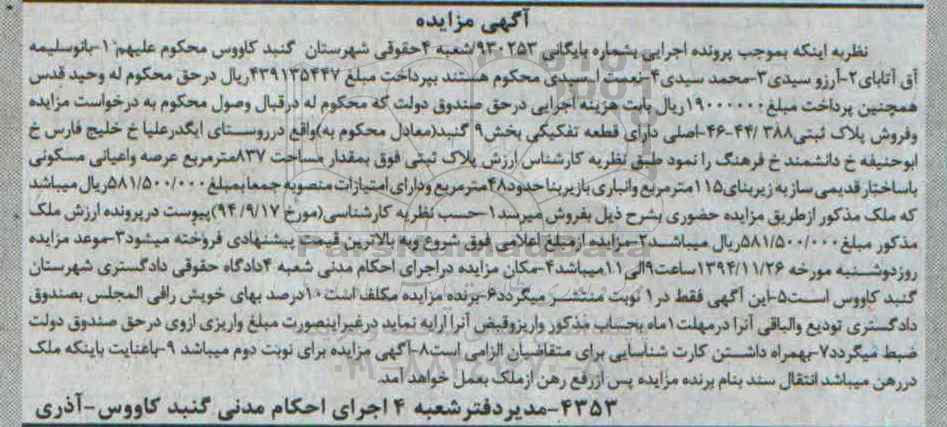 آگهی مزایده
نظر به اینکه بموجب پرونده اجرایی بشماره بایگانی ۹۳۰۲۵۳/شعبه ۴حقوقی شهرستان گنبد کاووس محکوم علیهم ۱-بانوسلیمه
آق آتابای۲-آرزو سیدی۳-محمد سیدی۴-نعمت ا.سیدی محکوم هستند بپرداخت مبلغ ۴۳۹۱۳۵۴۴۷ریال درحق محکوم له وحید قدس
همچنین پرداخت مبلغ۱۹۰۰۰۰۰۰ریال بابت هزینه اجرایی درحق صندوق دولت که محکوم له درقبال وصول محکوم به درخواست مزایده
وفروش پلاک ثبتی۳۸۸ /۴۴-۴۶-اصلی دارای قطعه تفکیکی بخش۹ گنبد(معادل محکوم به)واقع درروستای ایگدرعلیا خ خلیج فارس خ
ابوحنیفه خ دانشمند خ فرهنگ را نمود طبق نظریه کارشناس ارزش پلاک ثبتی فوق بمقدار مساحت ۸۳۷مترمربع عرصه واعیانی مسکونی
باساختار قدیمی ساز به زیربنای۱۱۵مترمربع وانباری بازیربنا حدود۴۸مترمربع ودارای امتیازات منصوبه جمعا بمبلغ۵۸۱/۵۰۰/۰۰۰ریال میباشد
که ملک مذکور ازطریق مزایده حضوری بشرح ذیل بفروش میرسد۱-حسب نظریه کارشناسی(مورخ ۹۴/۹/۱۷)پیوست درپرونده ارزش ملک
مذکور مبلغ۵۸۱/۵۰۰/۰۰۰ریال میباشد۲-مزایده ازمبلغ اعلامی فوق شروع وبه بالاترین قیمت پیشنهادی فروخته میشود۳-موعد مزایده
روزدوشنبه مورخه ۱۳۹۴/۱۱/۲۶ساعت۹الی۱۱میباشد۴-مکان مزایده دراجرای احکام مدنی شعبه ۴دادگاه حقوقی دادگستری شهرستان
گنبد کاووس است۵-این آگهی فقط در۱ نوبت منتشر میگردد۶-برنده مزایده مکلف است ۱۰درصد بهای خویش رافی المجلس بصندوق
دادگستری تودیع والباقی آنرا درمهلت۱ماه بحساب مذکور واریزوقبض آنرا ارایه نماید درغیراینصورت مبلغ واریزی ازوی درحق صندوق دولت
ضبط میگردد۷-بهمراه داشتن کارت شناسایی برای متقاضیان الزامی است۸-آگهی مزایده برای نوبت دوم میباشد ۹-باعنایت باینکه ملک
دررهن میباشد انتقال سند بنام برنده مزایده پس ازرفع رهن ازملک بعمل خواهد آمد.
۴۳۵۳-مدیردفترشعبه ۴ اجرای احکام مدنی گنبد کاووس-آذری